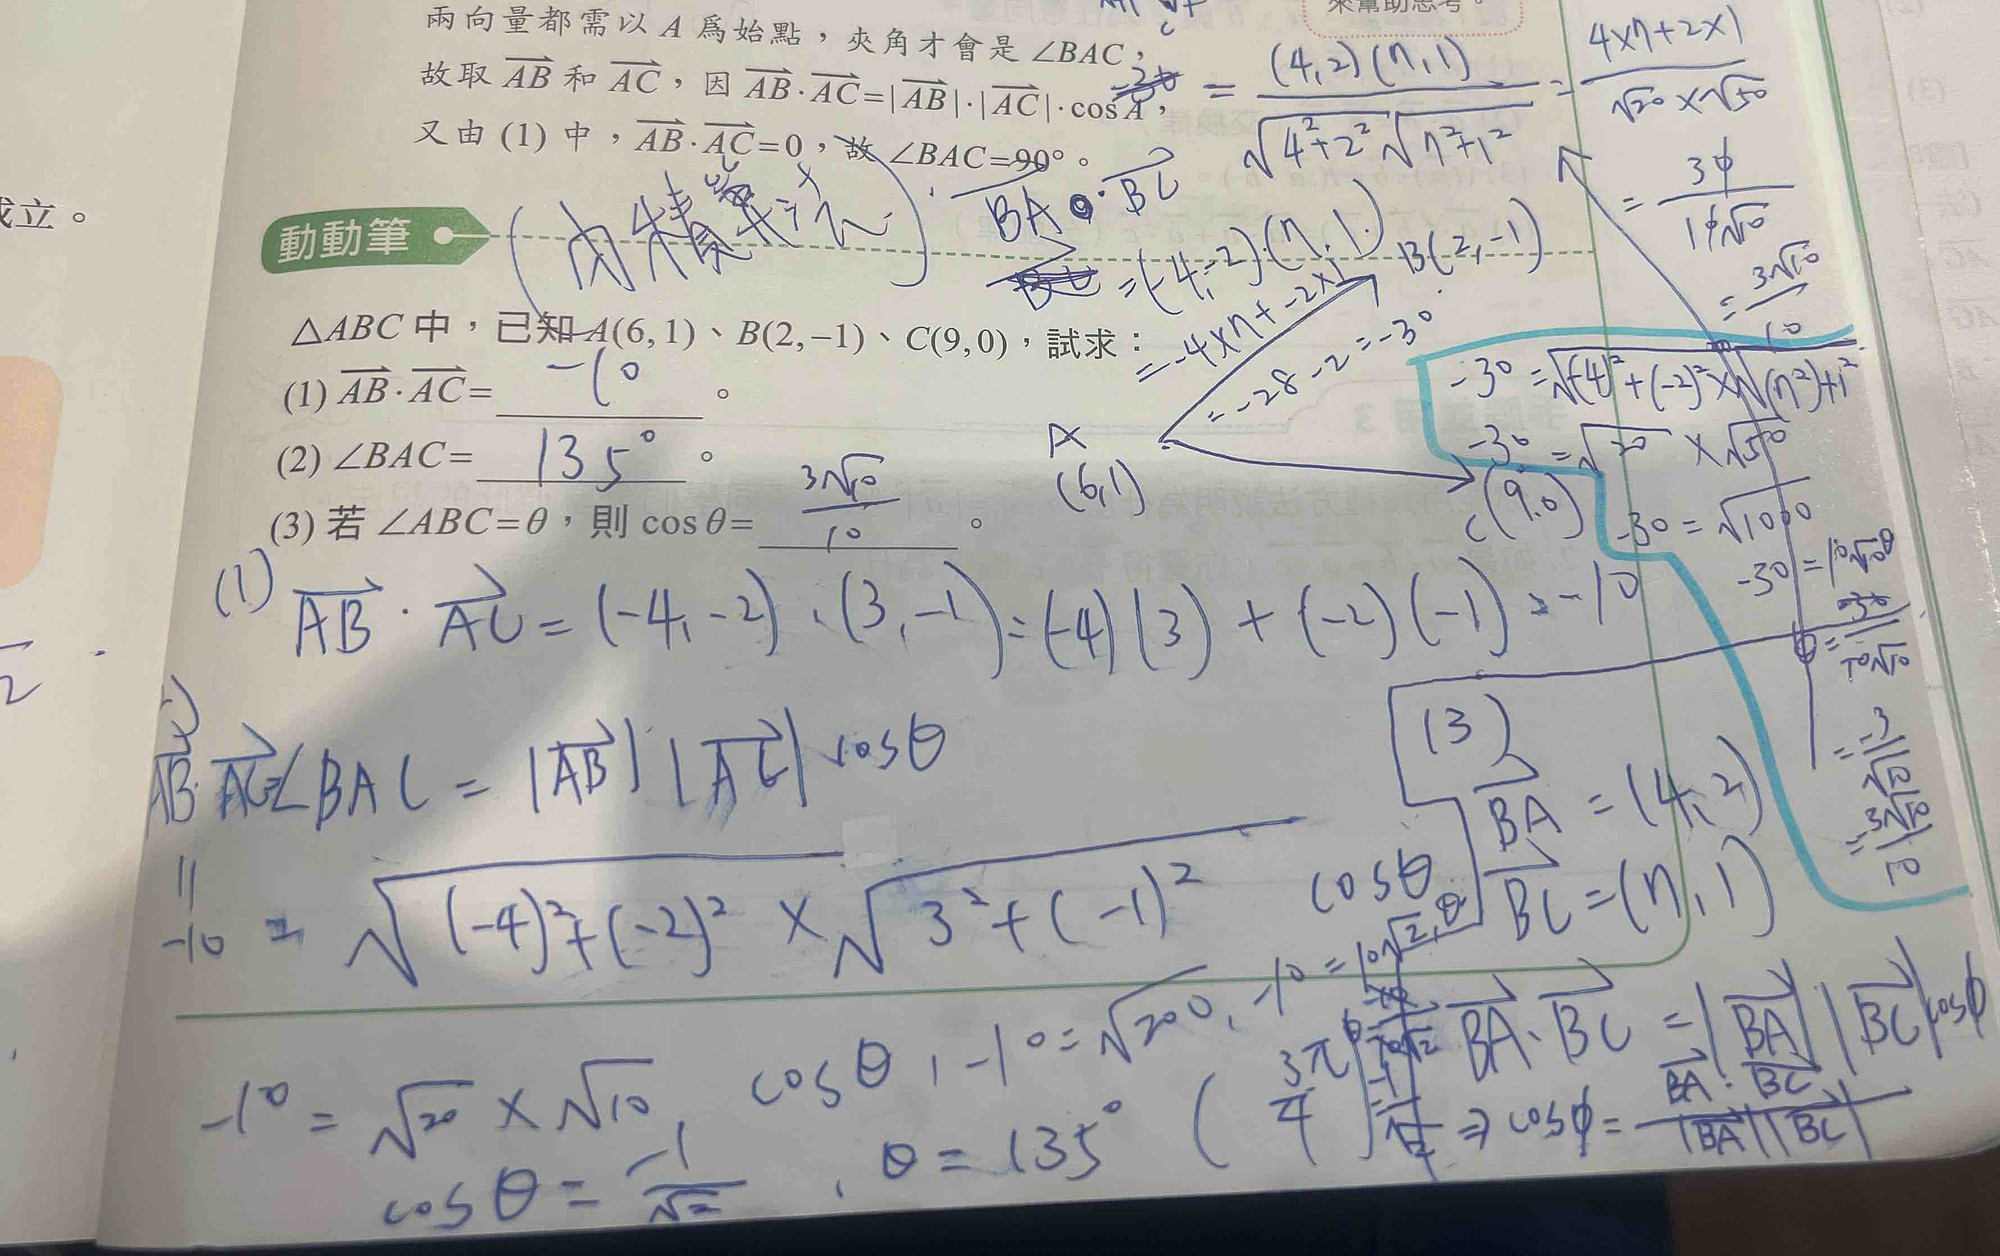 兩向量都需以 A 為始點,夾角才會是 ∠BAC,
故取 AB 和 AC,因 AB·AC=|AB|·|AC|·cos A,
又由 (1) 中,AB·AC=0,故 ∠BAC=90°。
來幫助思考。
成立。
動動筆
△ABC 中,已知 A(6,1)、B(2,−1)、C(9,0),試求:
(1) AB·AC= −10 。
(2) ∠BAC= 135° 。
(3) 若 ∠ABC=θ,則 cosθ= 3√10/10 。
= (4,2)(7,1) / √4²+2² √7²+1² = 4×7+2×1 / √20×√50
= 30 / 10√10
= 3√10 / 10
BA · BC
= (-4,-2)·(7,1)
= -4×7+-2×1
= -28-2 = -30
B(2,-1)
A
(6,1)
C(9,0)
-30 = √(-4)²+(-2)² × √(7²)+1²
-30 = √20 × √50
-30 = √1000
-30 = 10√10θ
-30 / 10√10
= -3 / √10
= -3√10 / 10
(1) AB · AC = (-4,-2)·(3,-1) = (-4)(3)+(-2)(-1) = -10
AB·AC=∠BAC = |AB||AC| cosθ
-10 = √(-4)²+(-2)² × √3²+(-1)² cosθ
-10 = √20 × √10 cosθ, -10=√200, -10=10√2,θ
cosθ = -1/√2, θ=135° (3π/4)
(3)
BA = (4,2)
BC = (7,1)
BA·BC = |BA||BC|cosφ
⇒ cosφ = BA·BC / |BA||BC|